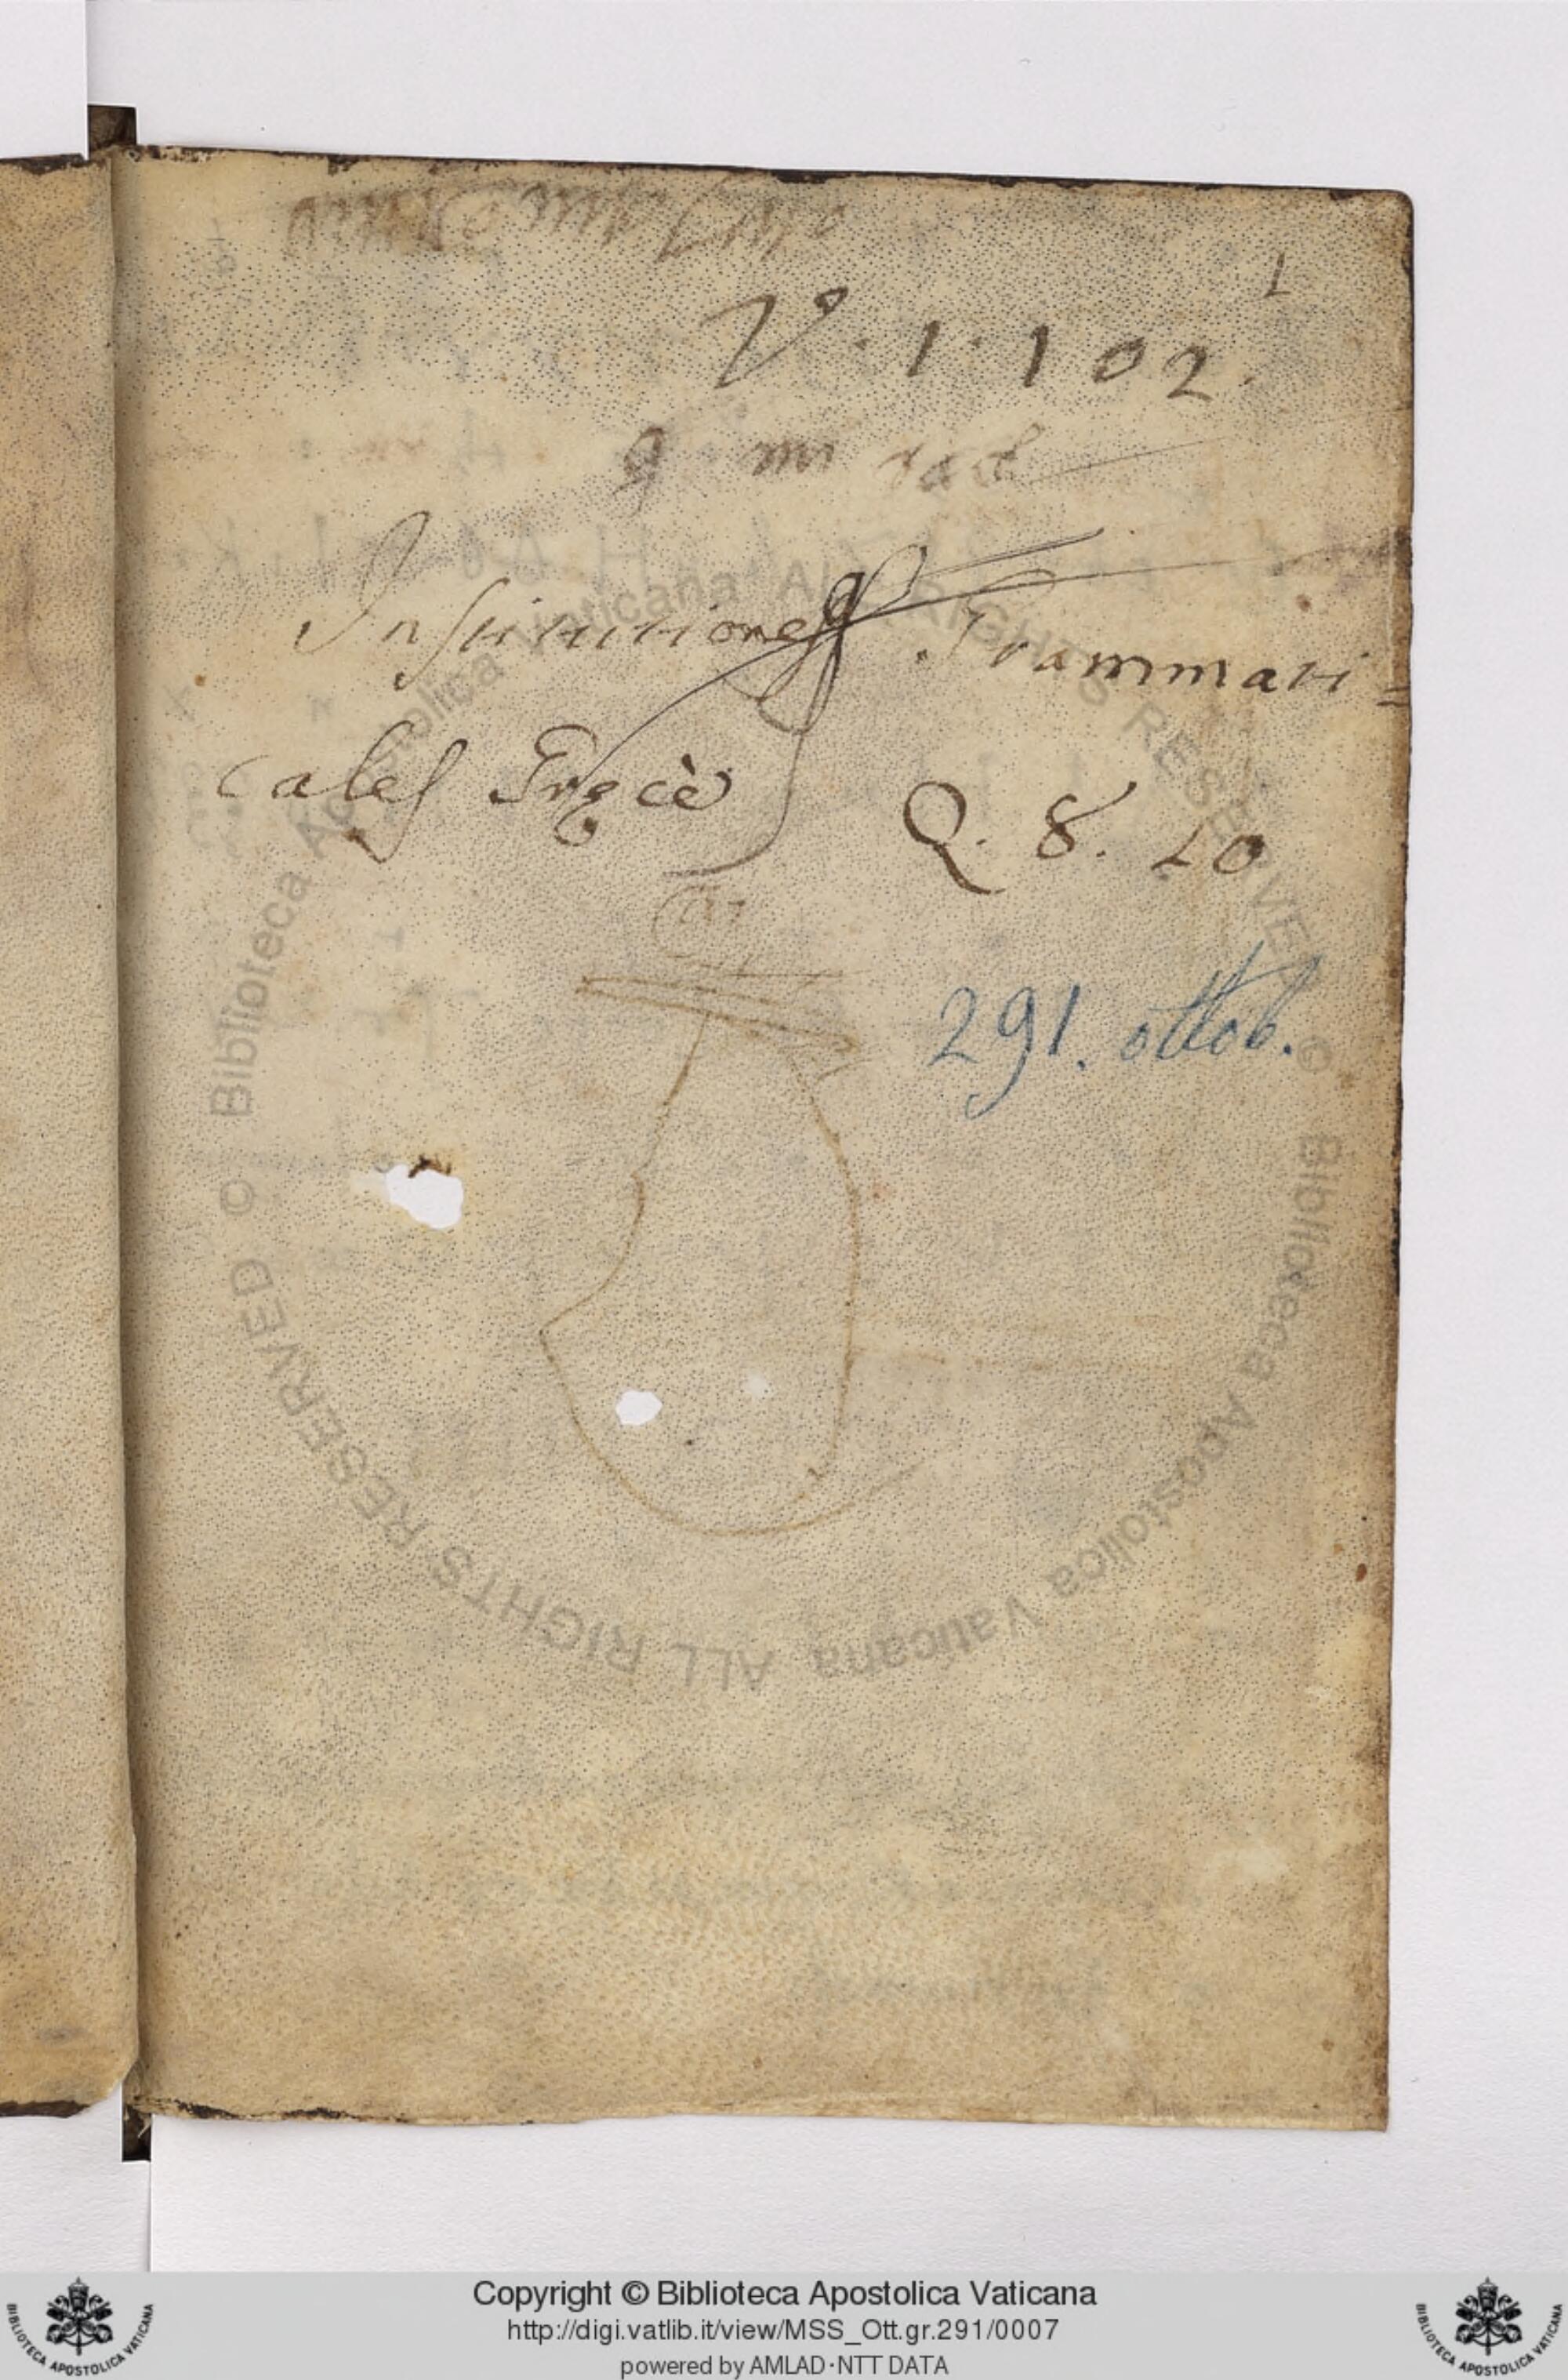 1
V. 1. 102.
Institutiones Grammati=
cales Gręcè
Q. 8. 20
291. ottob.
© Biblioteca Apostolica Vaticana ALL RIGHTS RESERVED
© Biblioteca Apostolica Vaticana ALL RIGHTS RESERVED
Copyright © Biblioteca Apostolica Vaticana
http://digi.vatlib.it/view/MSS_Ott.gr.291/0007
powered by AMLAD·NTT DATA
BIBLIOTECA APOSTOLICA VATICANA
BIBLIOTECA APOSTOLICA VATICANA